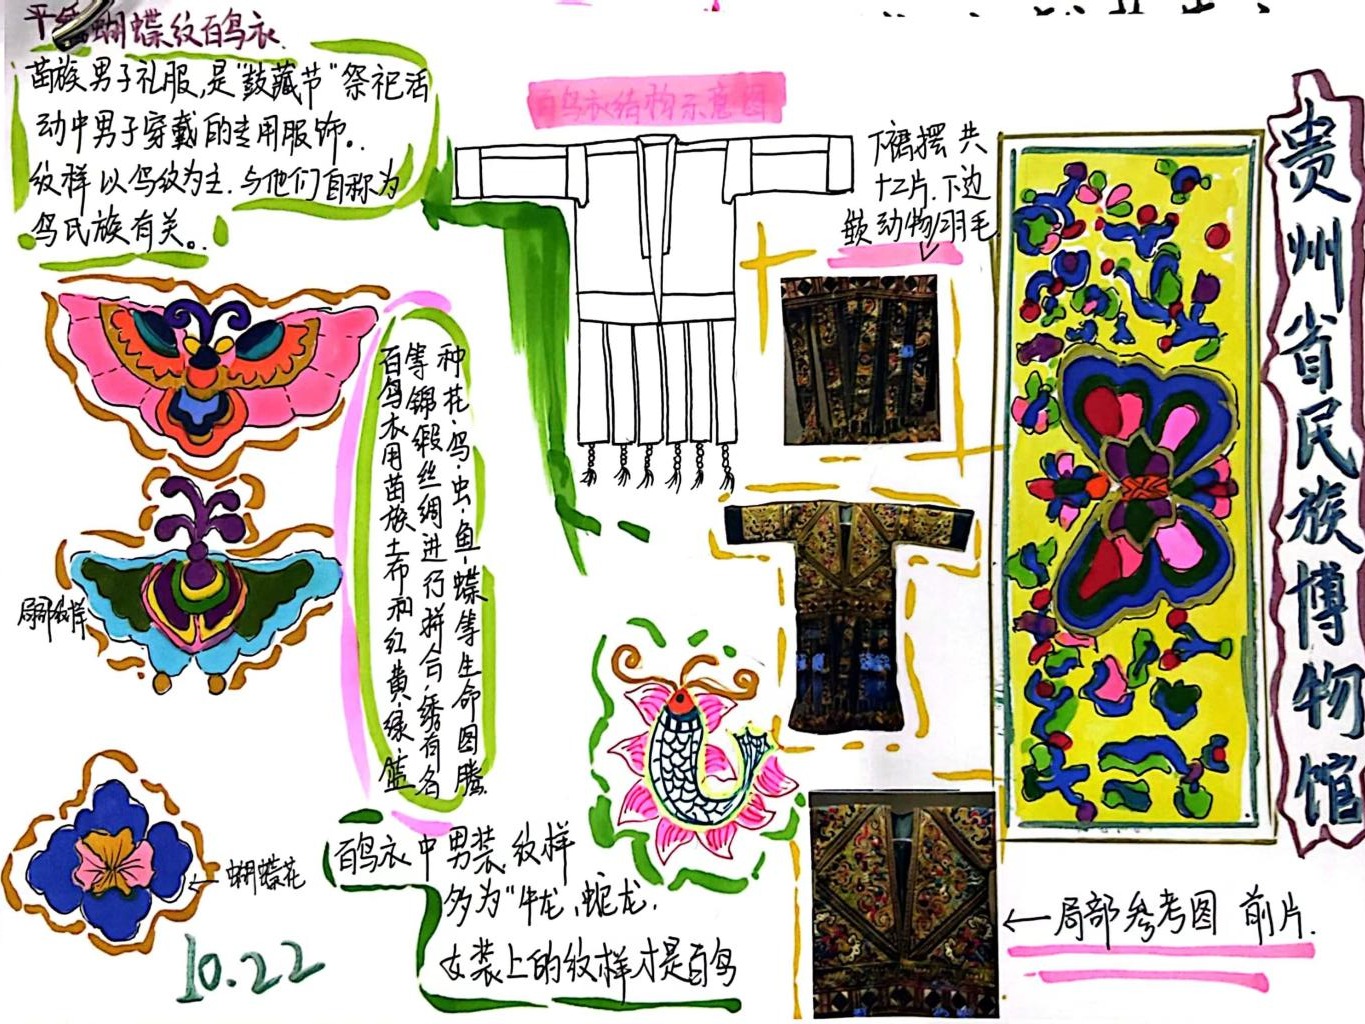 平绣蝴蝶纹百鸟衣
苗族男子礼服,是“鼓藏节”祭祀活
动中男子穿戴的专用服饰。
纹样以鸟纹为主.与他们自称为
鸟氏族有关。
百鸟衣结构示意图
下裙摆共
十二片.下边
缀动物羽毛
贵州省民族博物馆
百鸟衣用苗族土布和红.黄.绿.蓝
等锦缎丝绸进行拼合,绣有各
种花.鸟.虫.鱼.蝶等生命图腾
局部纹样
蝴蝶花
10.22
百鸟衣中男装纹样
多为“牛龙、蛇龙.
女装上的纹样才是百鸟
←局部参考图 前片.